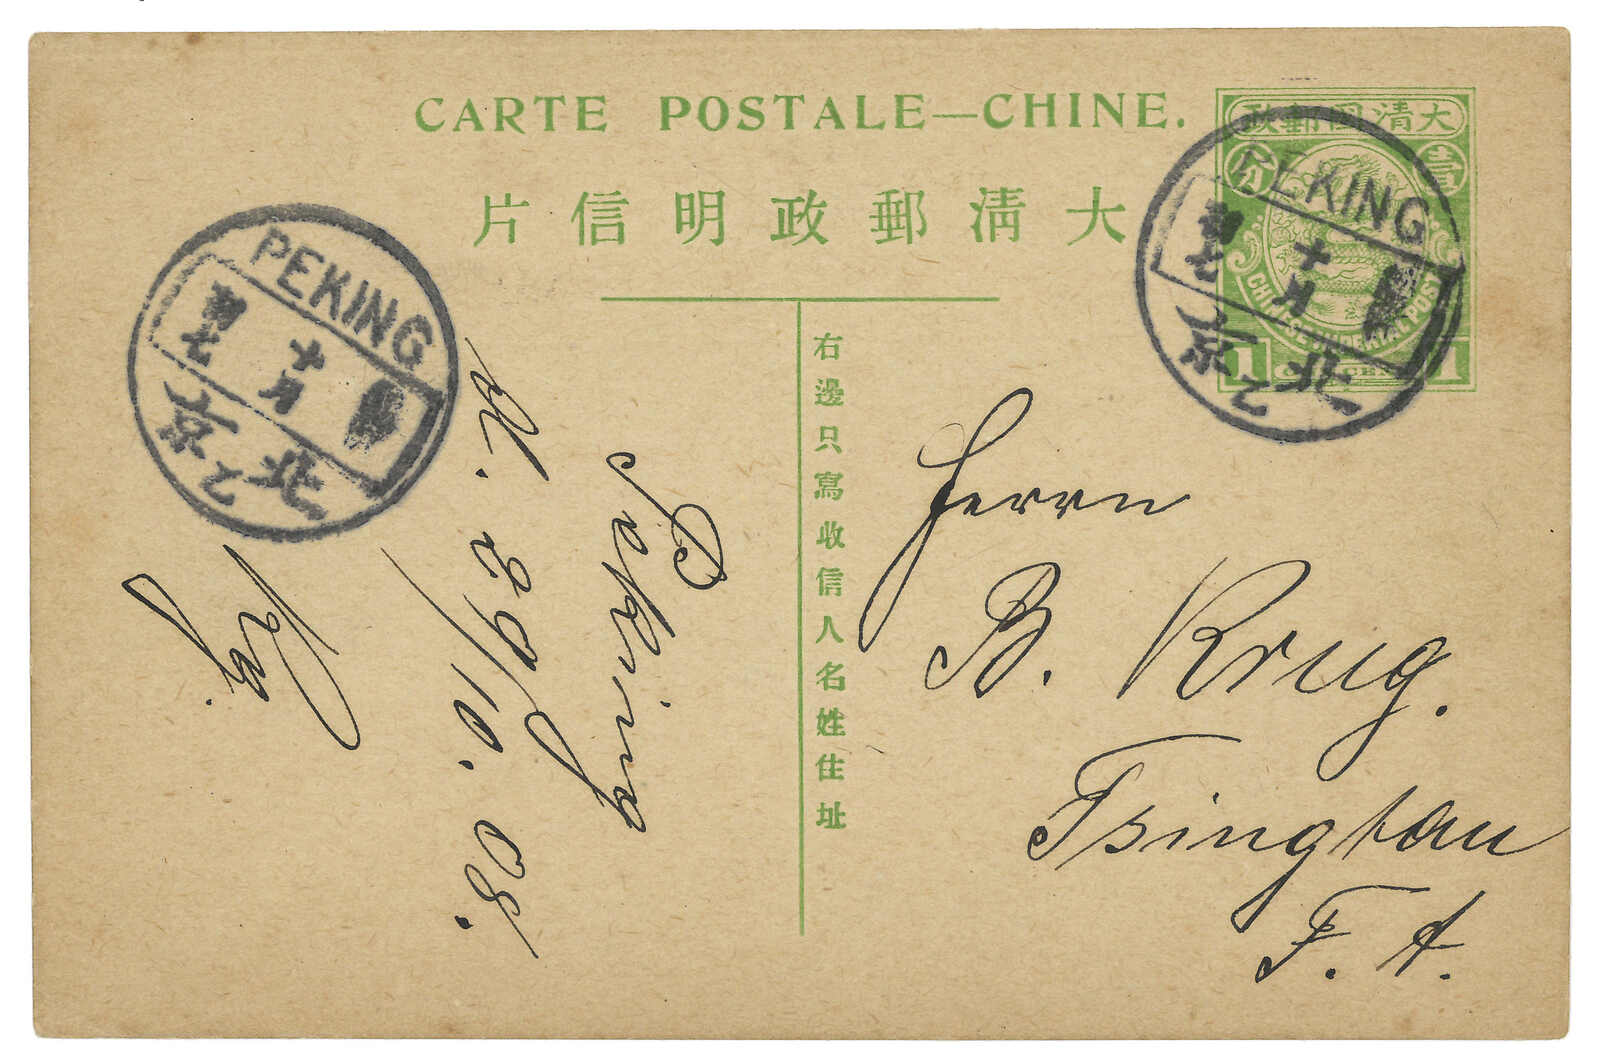 CARTE POSTALE—CHINE.
大清郵政明信片
右邊只寫收信人名姓住址
大清國郵政
壹
分
CHINESE IMPERIAL POST
1
1
PEKING
十月
北京
乙
PEKING
十月
北京
乙
Peking
d. 29/10. 08.
Herrn
B. Krug.
Tsingtau
F. A.